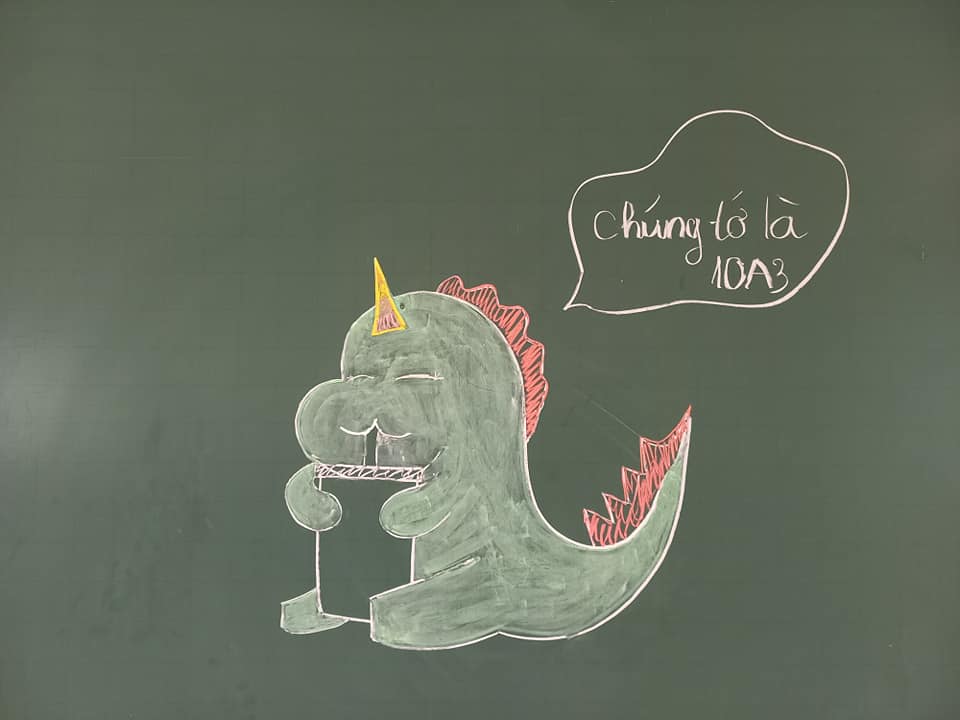 chúng tớ là
10A3